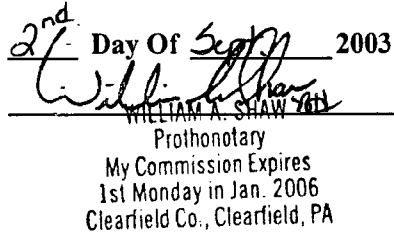 2nd Day Of Sept 2003
William A. Shaw
WILLIAM A. SHAW
Prothonotary
My Commission Expires
1st Monday in Jan. 2006
Clearfield Co., Clearfield, PA